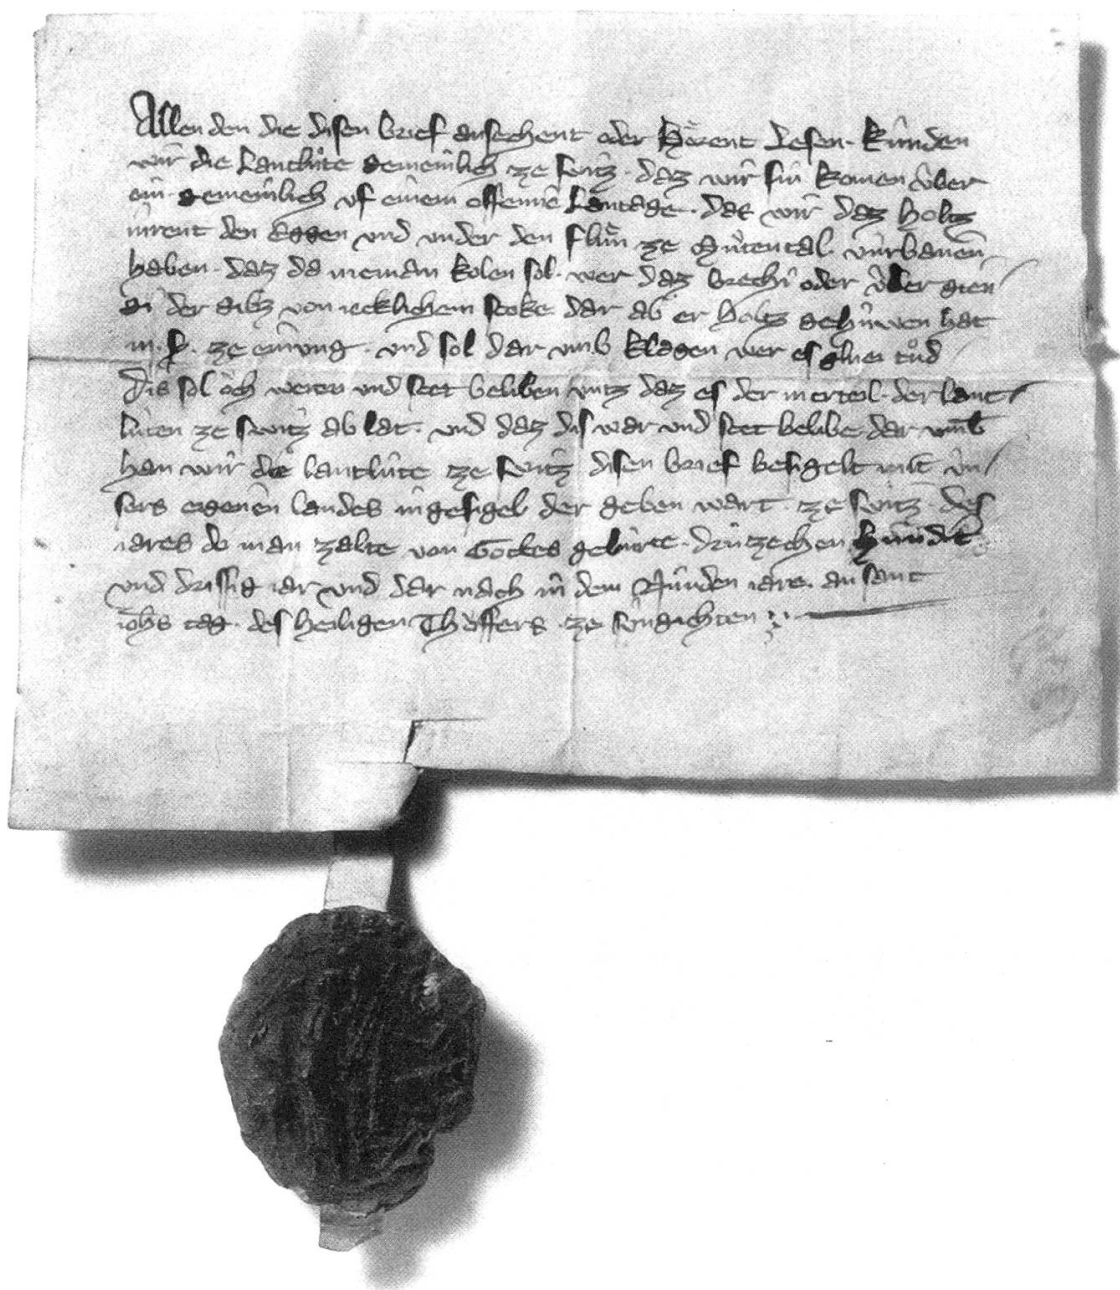 Allen den die disen brief ansechent oder hoͤrent lesen · kúnden
wir die Lantlúte gemeinlich ze switz · daz wir sin komen úber
ein · gemeinlich uf einem offenne Lantage · das wir daz holtz
inrent den Eggen und under den fluͤn ze Muͦtental · virbannen
haben · daz da nieman kolen sol · wer daz brechi oder úber gien
gi der gibz von iecklichem stoke dar ab er holtz gehúwen hat
ze einung · und sol dar umb klagen wer es
Dis sol oͮch weren und stet beliben untz daz es der merteil · der lant
lúten ze switz ab lat · und daz dis war und stet belibe dar umb
han wir die lantlúte ze switz disen brief besigelt mit ún
sers eigenen landes ingesigel der geben wart · ze switz · des
iares do man zalte von Gottes gebúrte · drúzechen hundert
und drissig iar und dar nach in dem Núnden iare · an sant
iohs tag · des heiligen Thoͤffers · ze súngichten